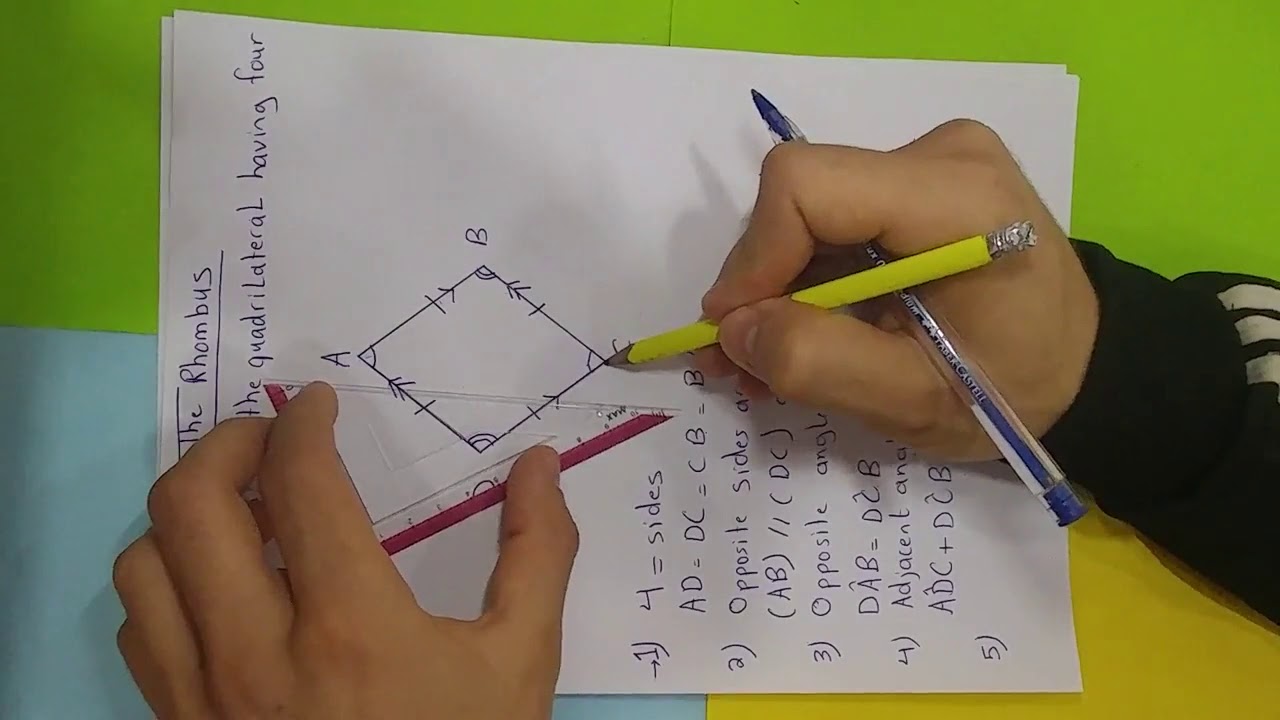 The Rhombus
the quadrilateral having four
A
B
→1) 4 = sides
AD = DC = CB = B
2) Opposite sides
(AB) // (DC)
3) Opposite angle
DÂB = DĈB
4) Adjacent
AD̂C + DĈB
5)
FABER-CASTELL
MAX